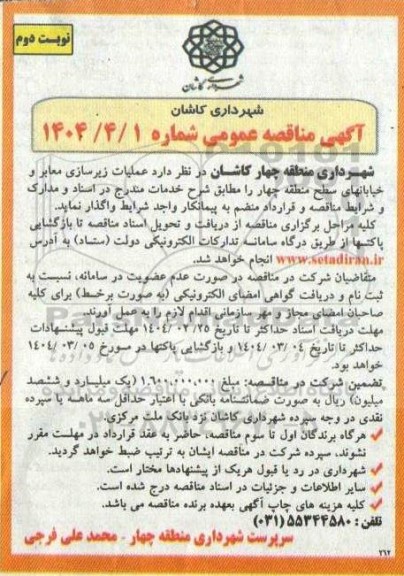 نوبت دوم
شهرداری کاشان
شهرداری کاشان
آگهی مناقصه عمومی شماره ۱۴۰۴/۴/۱
شهرداری منطقه چهار کاشان در نظر دارد عملیات زیرسازی معابر و
خیابانهای سطح منطقه چهار را مطابق شرح خدمات مندرج در اسناد و مدارک
و شرایط مناقصه و قرارداد منضم به پیمانکار واجد شرایط واگذار نماید.
کلیه مراحل برگزاری مناقصه از دریافت و تحویل اسناد مناقصه تا بازگشایی
پاکتها از طریق درگاه سامانه تدارکات الکترونیکی دولت (ستاد) به آدرس
www.setadiran.ir انجام خواهد شد.
متقاضیان شرکت در مناقصه در صورت عدم عضویت در سامانه، نسبت به
ثبت نام و دریافت گواهی امضای الکترونیکی (به صورت برخط) برای کلیه
صاحبان امضای مجاز و مهر سازمانی اقدام لازم را به عمل آورند.
مهلت دریافت اسناد حداکثر تا تاریخ ۱۴۰۴/۰۲/۲۵ مهلت قبول پیشنهادات
حداکثر تا تاریخ ۱۴۰۴/۰۳/۰۴ و بازگشایی پاکتها در مورخ ۱۴۰۴/۰۳/۰۵
خواهد بود.
تضمین شرکت در مناقصه: مبلغ (یک میلیارد و ششصد
میلیون) ریال به صورت ضمانتنامه بانکی با اعتبار حداقل سه ماهه یا سپرده
نقدی در وجه سپرده شهرداری کاشان نزد بانک ملت مرکزی.
هرگاه برندگان اول تا سوم مناقصه، حاضر به عقد قرارداد در مهلت مقرر
نشوند، سپرده شرکت در مناقصه ایشان به ترتیب ضبط خواهد گردید.
شهرداری در رد یا قبول هریک از پیشنهادها مختار است.
سایر اطلاعات و جزئیات در اسناد مناقصه درج شده است.
کلیه هزینه های چاپ آگهی بعهده برنده مناقصه می باشد.
تلفن: ۵۵۳۴۴۵۸۰ (۰۳۱)
سرپرست شهرداری منطقه چهار - محمد علی فرجی
۲۶۲